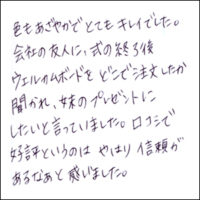 色もあざやかでとてもキレイでした。
会社の友人に、式の終了後
ウェルカムボードをどこで注文したか
聞かれ、妹のプレゼントに
したいと言っていました。口コミで
好評というのは やはり 信頼が
あるなあと 感じました。